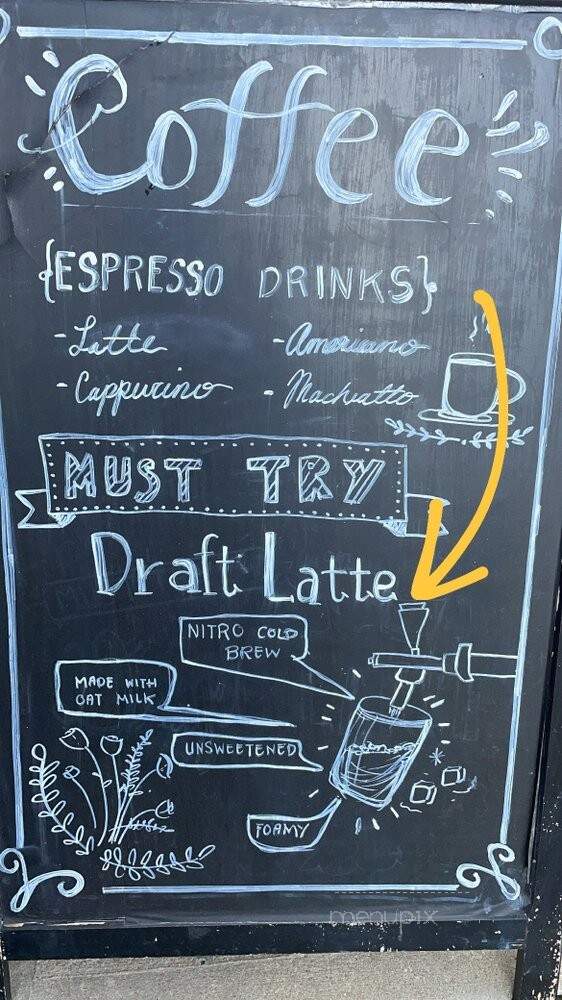 Coffee
{ESPRESSO DRINKS}
-Latte -Americano
-Cappucino -Machiatto
MUST TRY
Draft Latte
NITRO COLD
BREW
MADE WITH
OAT MILK
UNSWEETENED
FOAMY
menupix